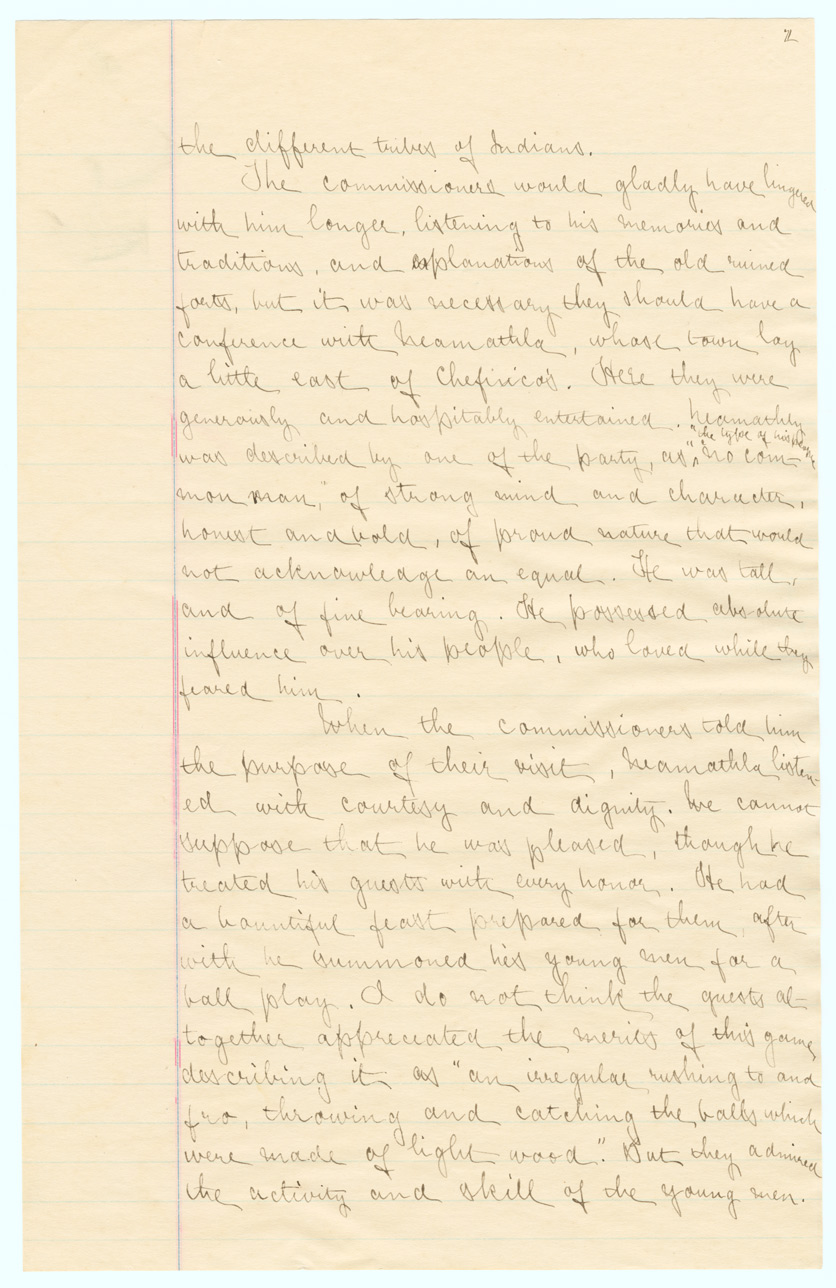 2
the different tribes of Indians.
The commissioners would gladly have lingered
with him longer, listening to his memories and
traditions, and explanations of the old ruined
forts, but it was necessary they should have a
conference with Neamathla, whose town lay
a little east of Chefixico's. Here they were
generously and hospitably entertained. Neamathla
"the type of his people"
was described by one of the party, as "no com-
mon man," of strong mind and character,
honest and bold, of proud nature that would
not acknowledge an equal. He was tall,
and of fine bearing. He possessed absolute
influence over his people, who loved while they
feared him.
When the commissioners told him
the purpose of their visit, Neamathla listen-
ed with courtesy and dignity. We cannot
suppose that he was pleased, though he
treated his guests with every honor. He had
a bountiful feast prepared for them, after
with he summoned his young men for a
ball play. I do not think the guests al-
together appreciated the merits of this game,
describing it as "an irregular rushing to and
fro, throwing and catching the balls which
were made of light wood." But they admired
the activity and skill of the young men.